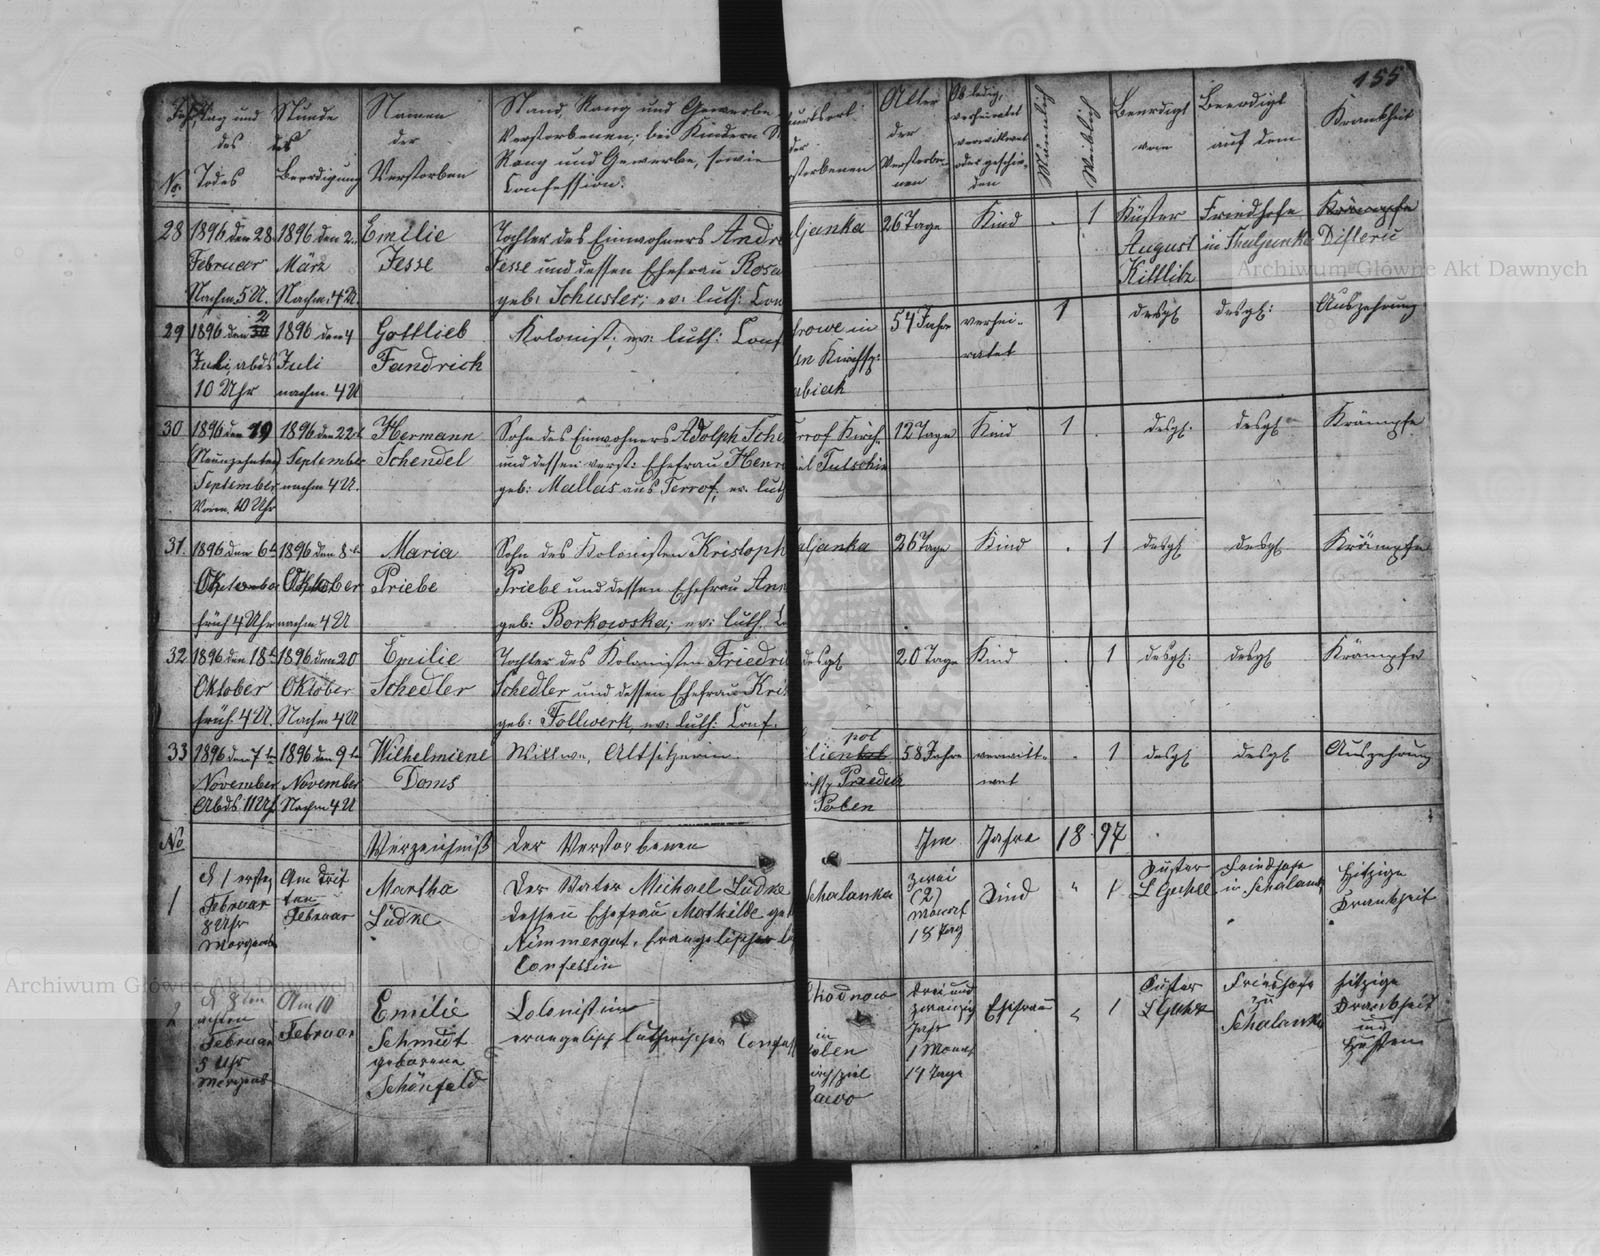 155
No.
Jahr, Tag und
des
Todes
Stunde
der
Beerdigung
Namen
der
Verstorben
Stand, Rang und Gewerbe
Verstorbenen; bei Kindern
Rang und Gewerbe, sowie
Confession.
Alter
der
Verstorbe-
nen
Ob ledig,
verheiratet
verwittwet
oder geschie-
den
Männlich
Weiblich
Beerdigt
vom
Beerdigt
auf dem
Krankheit
28
1896 den 28.
Februar
Nachm. 5 U.
1896 den 2.
März
Nachm. 4 U.
Emilie
Jesse
Tochter des Einwohners Andre
Jesse und dessen Ehefrau Rosa
geb: Schuster; ev: luth: Con
ljanka
26 Tage
Kind
.
1
Küster
August
Kittlitz
Friedhofe
in Schaljanka
Krämpfe
Difteric
29
1896 den 2
Juli, abds
10 Uhr
1896 den 4
Juli
nachm. 4 U
Gottlieb
Fandrich
Kolonist; ev: luth: Conf
rowe in
len Kirchsp:
abiak
54 Jahr
verhei-
ratet
1
desgl.
desgl:
Auszehrung
30
1896 den 19
(Neunzehnten)
September
Vorm. 10 Uhr
1896 den 22t
September
nachm 4 U.
Hermann
Schendel
Sohn des Einwohners Adolph Sche
und dessen verst: Ehefrau Henr
geb: Mallas aus Terrof, ev. luth
rrof Kirch-
iel Tutschin
12 Tage
Kind
1
.
desgl.
desgl
Krämpfe
31.
1896 den 6t
Oktober
früh 4 Uhr
1896 den 8t
Oktober
nachm 4 U
Maria
Priebe
Sohn des Kolonisten Kristoph
Priebe und dessen Ehefrau Ann
geb: Borkowska; ev: luth. C
aljanka
26 Tage
Kind
.
1
desgl
desgl
Krämpfe
32.
1896 den 18t
Oktober
früh. 4 U.
1896 den 20
Oktober
Nachm 4 U
Emilie
Schedler
Tochter des Kolonisten Friedri
Schedler und dessen Ehefrau Kris
geb: Follwerk, ev: luth: Conf.
desgl
20 Tage
Kind
.
1
desgl:
desgl
Krämpfe
33
1896 den 7t
November
Abds. 11 Uhr
1896 den 9t
November
Nachm 4 U
Wilhelmiene
Doms
Wittwe, Altsitzerin.
pol
Priedek
Polen
58 Jahre
verwitt-
wet
.
1
desgl
desgl
Auszehrung
No
Verzeichniß
der Verstorbenen
Im
Jahre
18
97
1
d 1 erste,
Februar
8 Uhr
Morgens
Am drit
ten
Februar
Martha
Lüdke
Der Vater Michael Lüdke
dessen Ehefrau Mathilde geb
Nimmergut, Evangelischer
Confessin
Schalanka
zwei
(2)
Monat
18 Tag
Kind
"
1
Küster
Friedhofe
in Schalank
Hitzige
Krankheit
2
d 8ten
achten
Februar
5 Uhr
Morgens
Am 10
Februar
Emilie
Schmidt
geborene
Schönfeld
Kolonistin
evangelisch lutherischer Confess
Chodnow
in
olen
irchspiel
drei und
zwanzig
Jahr
1 Monat
14 Tage
Ehefrau
"
1
Küster
Friedhofe
zu
Schalanka
Hitzige
Krankheit
und
Husten
Archiwum Główne Akt Dawnych
Archiwum Główne Akt Dawnych